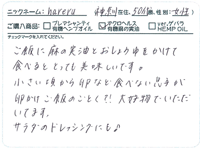 ニックネーム: haveru 神奈川 在住 50代 歳、性別: 女性)
ご購入商品) プレマシャンティ 有機ヘンプオイル オクロヘルス 有機麻の実油 ヴェーダバ HEMP OIL
チェックマークを入れてください。
ご飯に麻の実油とおしょう油をかけて
食べるととっても美味しいです。
小さい頃から卵など食べない息子が
卵かけご飯のごとくで! 大好物でいただい
ています。
サラダのドレッシングにも♪